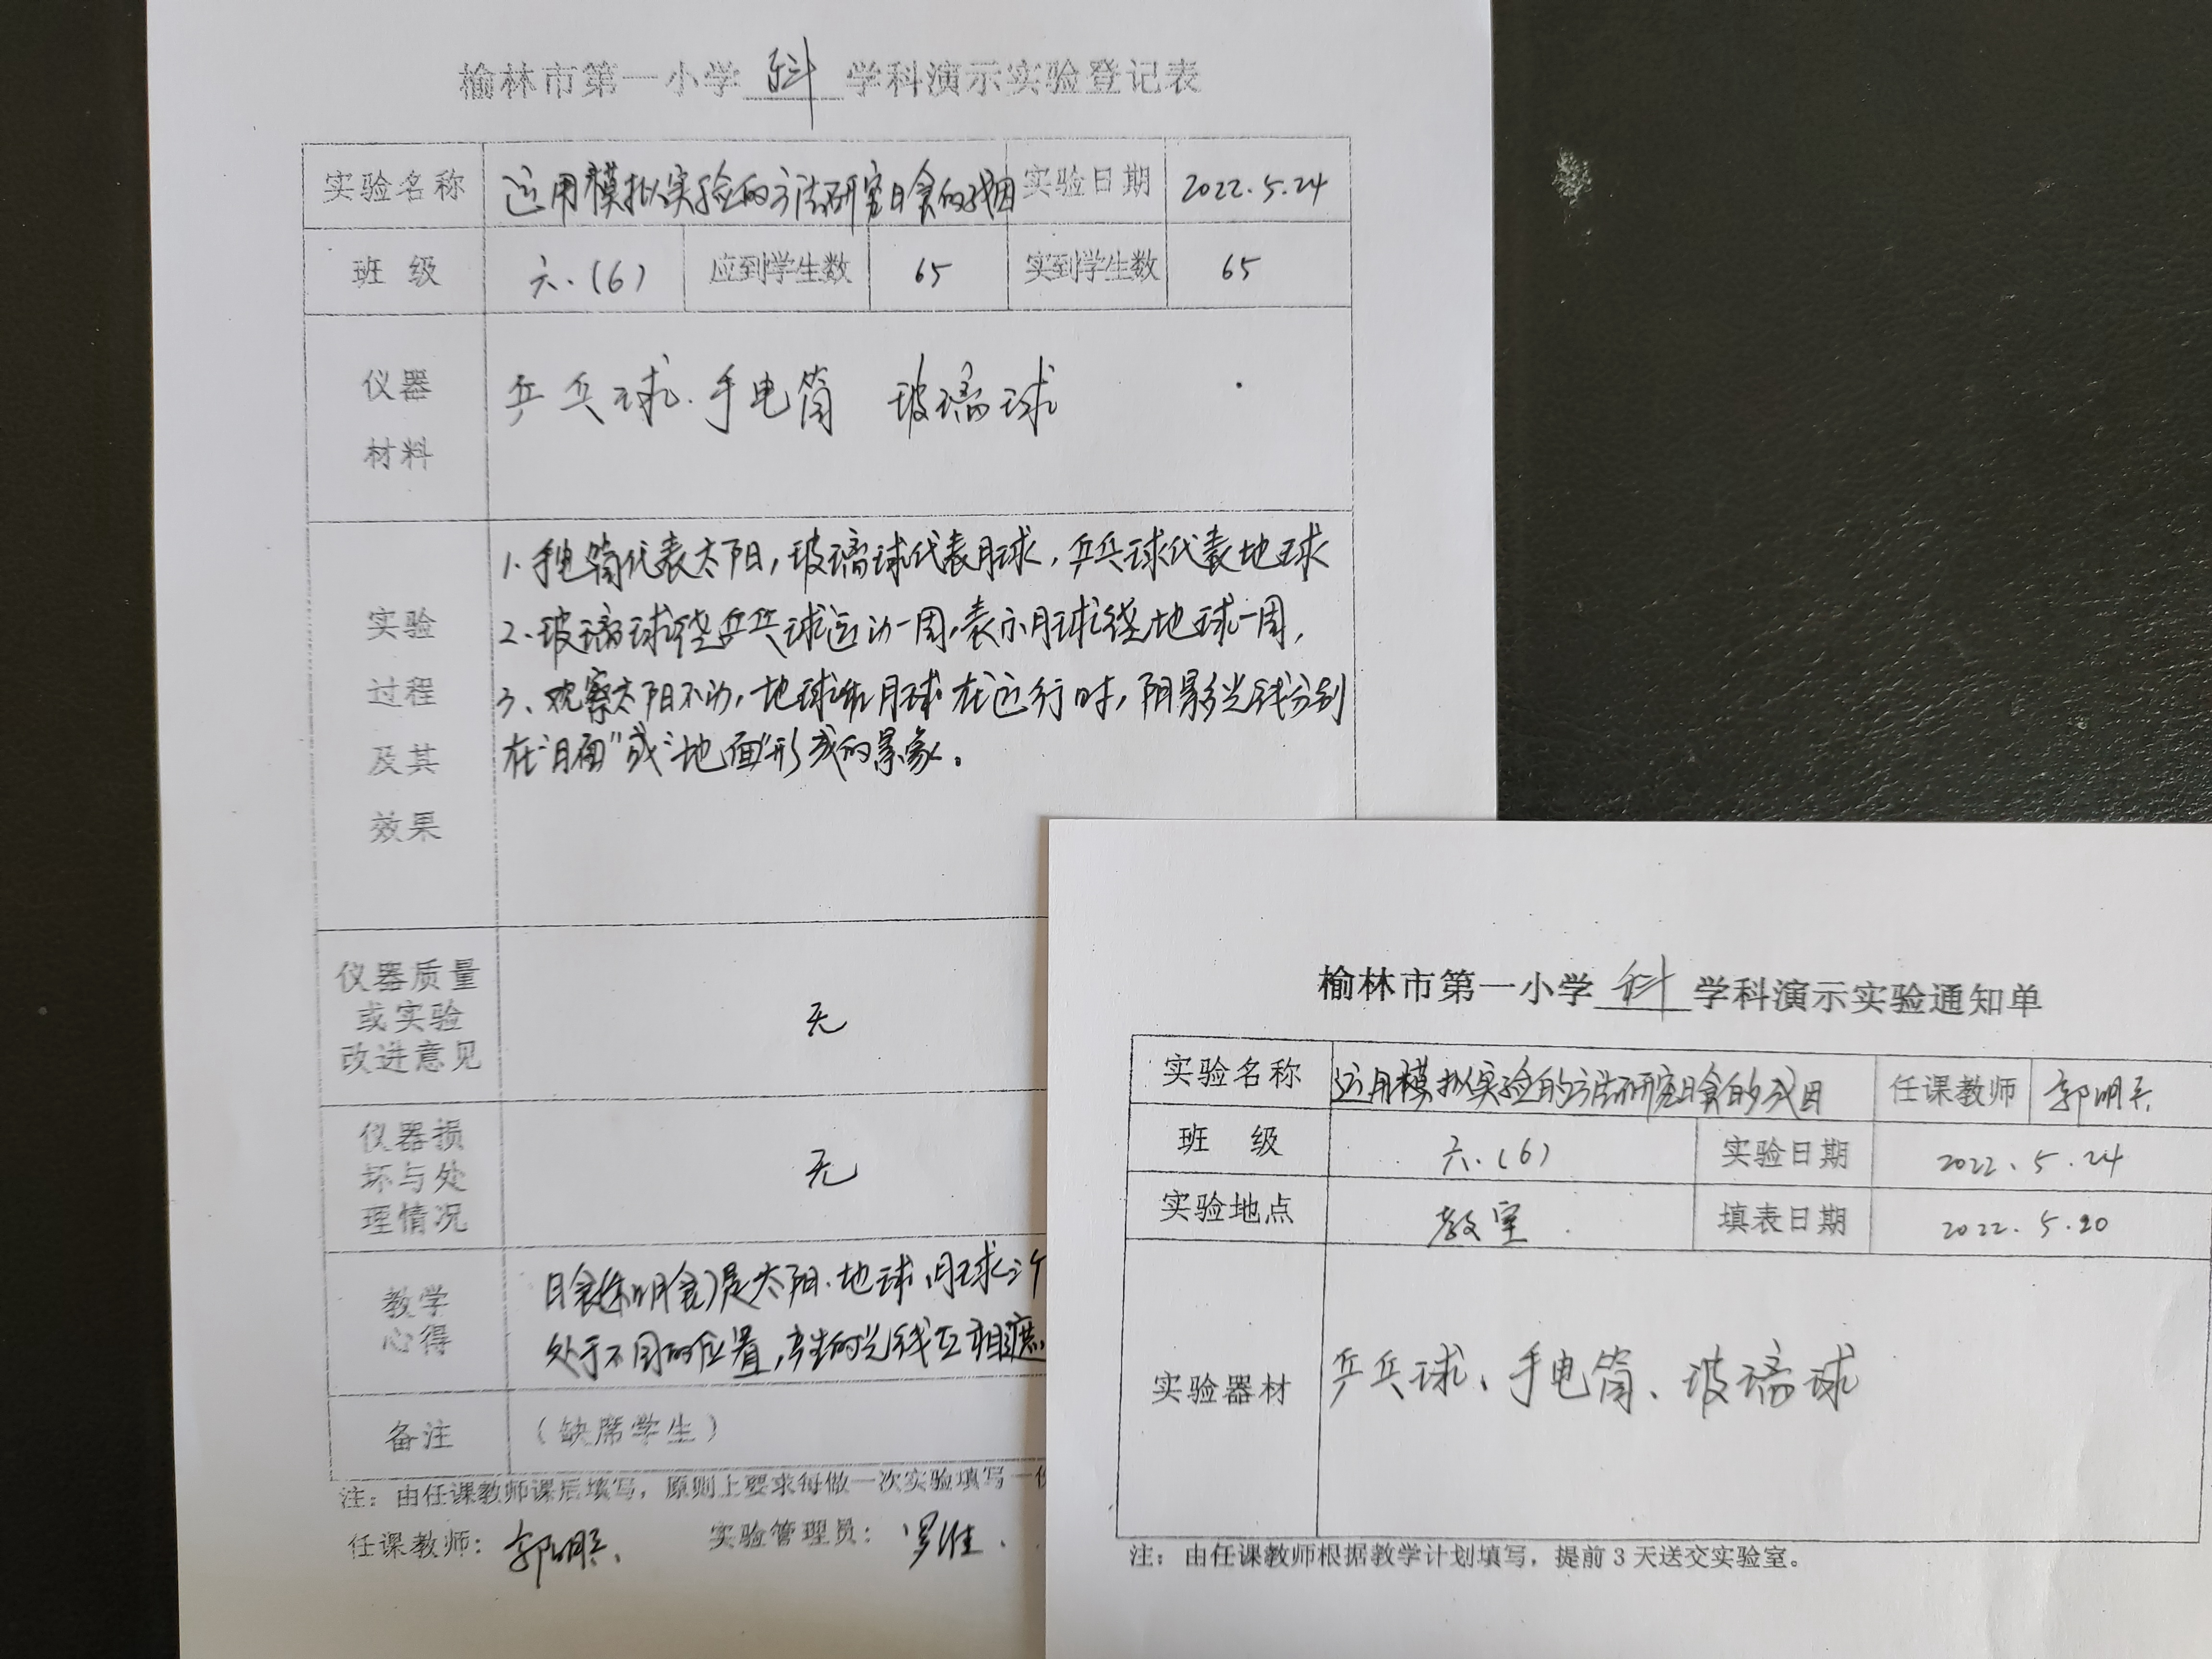 榆林市第一小学 科 学科演示实验登记表
实验名称 运用模拟实验的方法研究日食的成因 实验日期 2022.5.24
班 级 六.(6) 应到学生数 65 实到学生数 65
仪器
材料
乒乓球.手电筒 玻璃球
实验
过程
及其
效果
1.手电筒代表太阳,玻璃球代表月球,乒乓球代表地球
2、玻璃球绕乒乓球运动一周,表示月球绕地球一周,
3、观察太阳不动,地球和月球在运行时,阴影光线分别
在“月面”或“地面”形成的景象。
仪器质量
或实验
改进意见
无
仪器损
坏与处
理情况
无
教学
心得
日食(和月食)是太阳.地球、月球三个
处于不同的位置,产生的光线互相遮
备注 (缺席学生)
注:由任课教师课后填写,原则上要求每做一次实验填写一
任课教师:郭明 实验管理员:罗
榆林市第一小学 科 学科演示实验通知单
实验名称 运用模拟实验的方法研究日食的成因 任课教师 郭明
班 级 六.(6) 实验日期 2022.5.24
实验地点 教室 填表日期 2022.5.20
实验器材 乒乓球、手电筒、玻璃球
注:由任课教师根据教学计划填写,提前3天送交实验室。